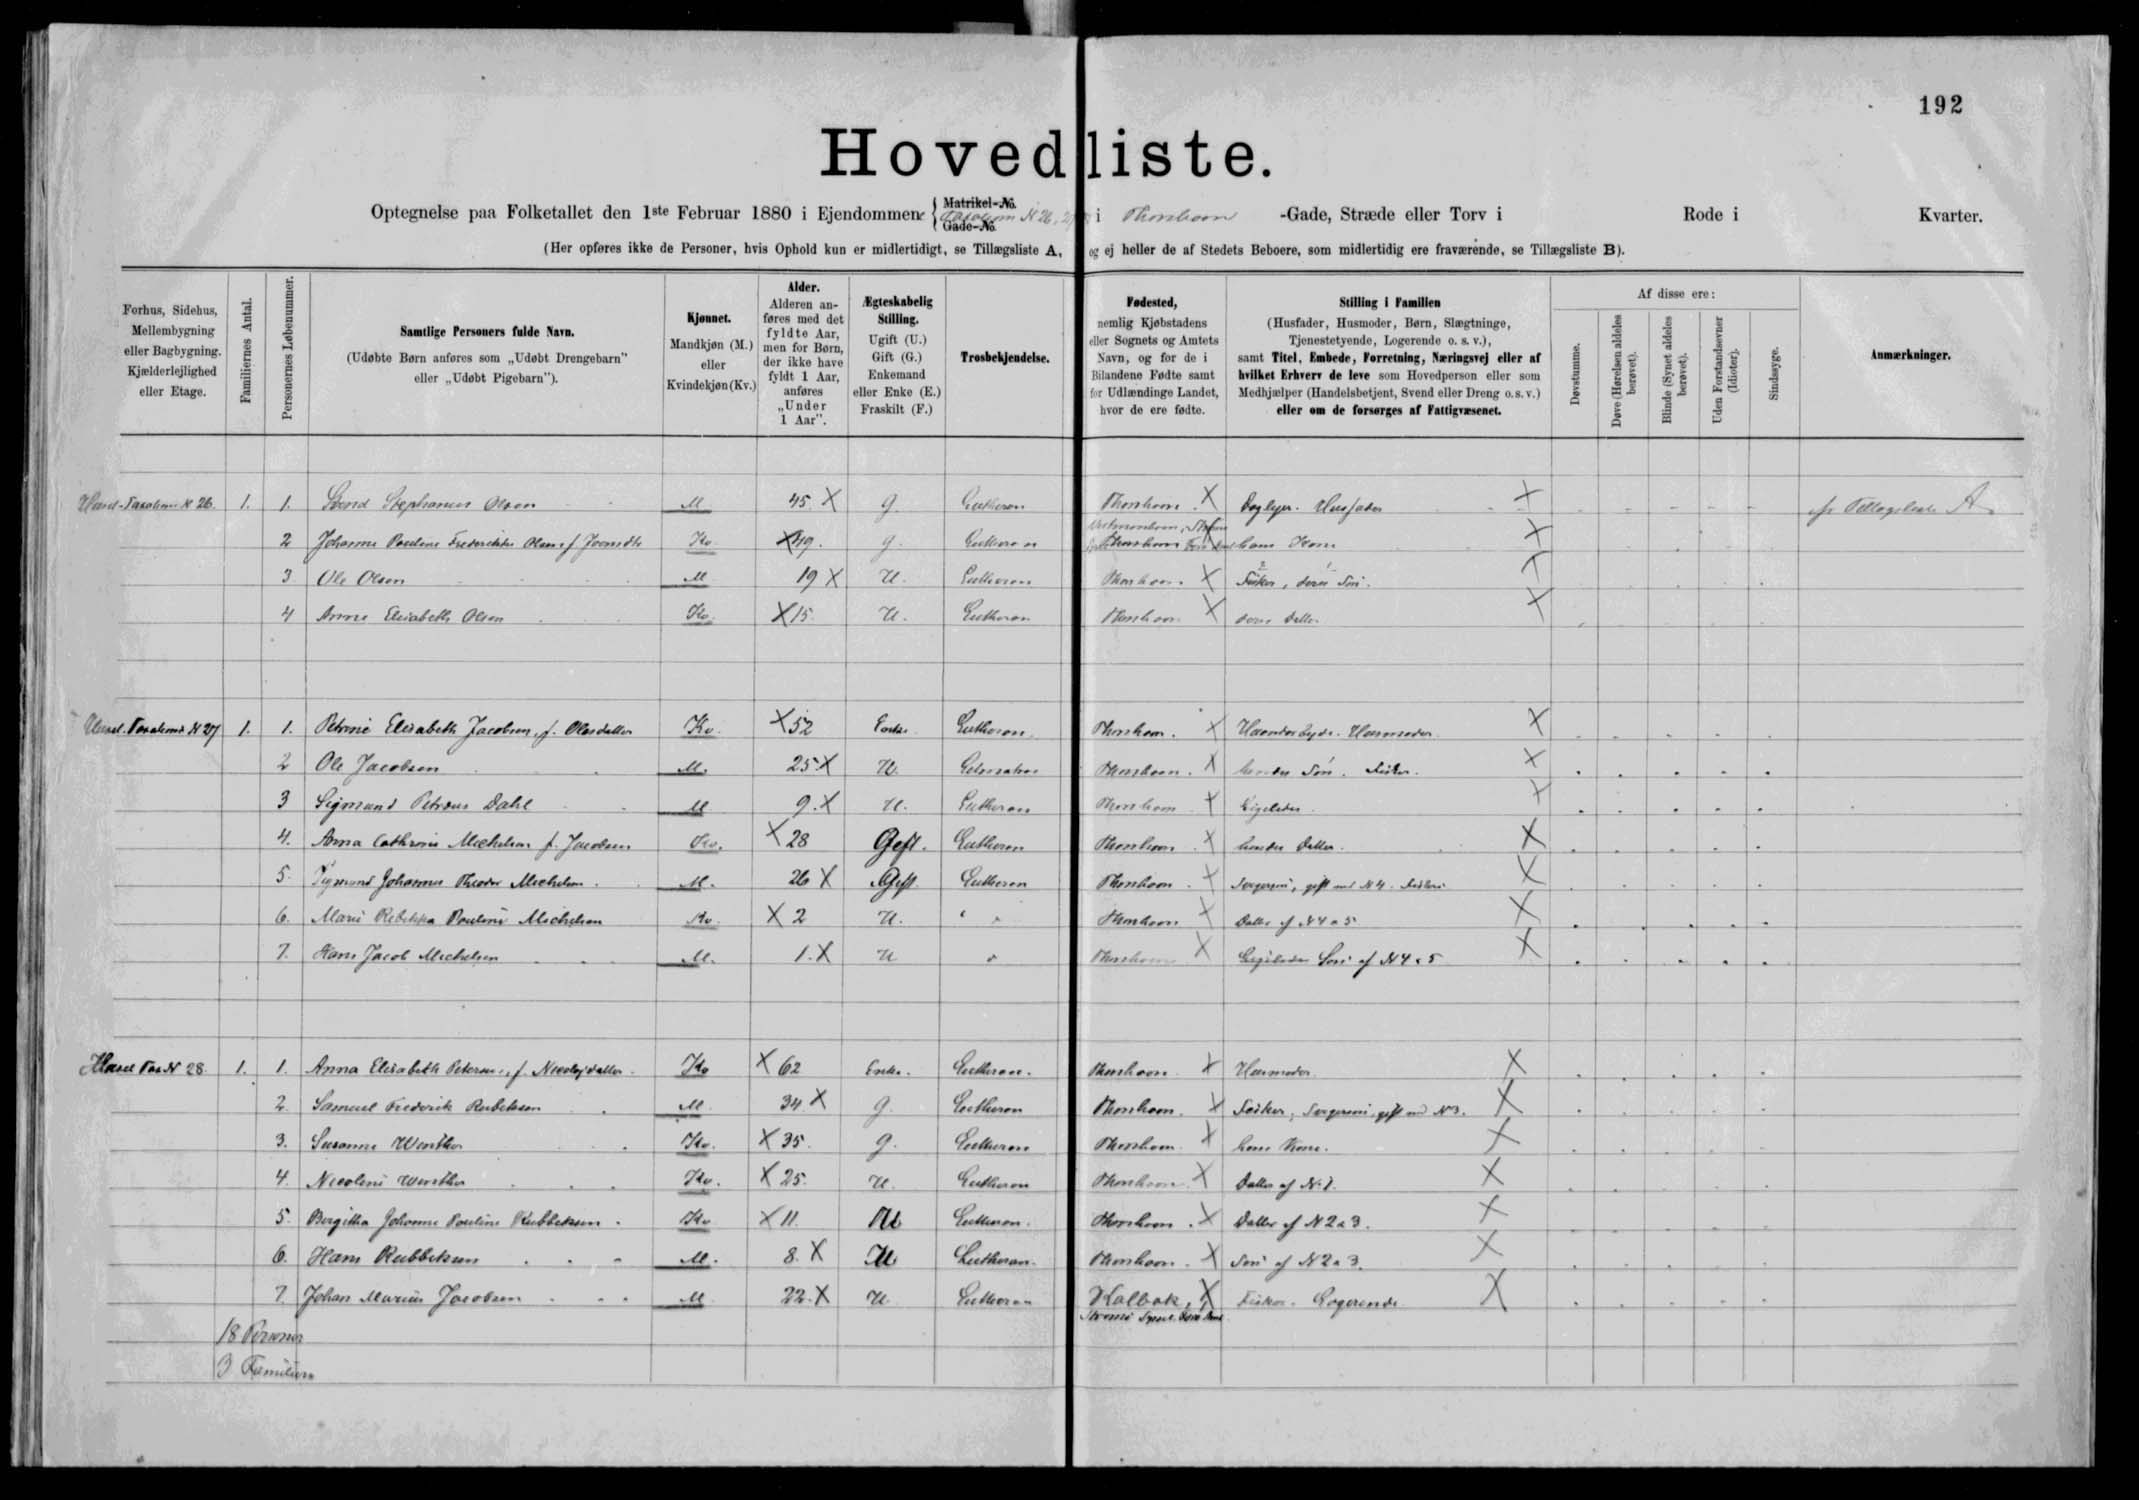 192
Hovedliste.
Optegnelse paa Folketallet den 1ste Februar 1880 i Ejendommene { Matrikel-No. Gade-No. i Thorshavn -Gade, Stræde eller Torv i Rode i Kvarter.
(Her opføres ikke de Personer, hvis Ophold kun er midlertidigt, se Tillægsliste A, og ej heller de af Stedets Beboere, som midlertidig ere fraværende, se Tillægsliste B).
Forhus, Sidehus, Mellembygning eller Bagbygning. Kjælderlejlighed eller Etage.
Familiernes Antal.
Personernes Løbenummer.
Samtlige Personers fulde Navn. (Udøbte Børn anføres som „Udøbt Drengebarn" eller „Udøbt Pigebarn").
Kjønnet. Mandkjøn (M.) eller Kvindekjøn (Kv.)
Alder. Alderen anføres med det fyldte Aar, men for Børn, der ikke have fyldt 1 Aar, anføres „Under 1 Aar".
Ægteskabelig Stilling. Ugift (U.) Gift (G.) Enkemand eller Enke (E.) Fraskilt (F.)
Trosbekjendelse.
Fødested, nemlig Kjøbstadens eller Sognets og Amtets Navn, og for de i Bilandene Fødte samt for Udlændinge Landet, hvor de ere fødte.
Stilling i Familien (Husfader, Husmoder, Børn, Slægtninge, Tjenestetyende, Logerende o. s. v.), samt Titel, Embede, Forretning, Næringsvej eller af hvilket Erhverv de leve som Hovedperson eller som Medhjælper (Handelsbetjent, Svend eller Dreng o. s. v.) eller om de forsørges af Fattigvæsenet.
Af disse ere:
Døvstumme.
Døve (Hørelsen aldeles berøvet).
Blinde (Synet aldeles berøvet).
Uden Forstandsevner (Idioter).
Sindssyge.
Anmærkninger.
N 26. 1. 1. Stephanus Olsen M 45 X G. Lutheran Thorshavn. X Husfader X Tillægsliste A
2 Johanne Kv. X 49. G. Lutheran hans Kone X
3 Ole Olsen M 19 X U. Lutheran Thorshavn X Fisker, deres Søn. X
4 Anne Elisabeth Olsen Kv. X 15. U. Lutheran Thorshavn X deres Datter X
N 27 1. 1. Elisabeth Jacobsen, f. Olesdatter Kv. X 52 Enke Lutheran Thorshavn. X Husmoder X
2 Ole Jacobsen M. 25 X U. Thorshavn. X hendes Søn. Fisker. X
3 Sigmund Petræus Dahl M 9. X U. Lutheran Thorshavn X X
4. Anna Cathrine Michelsen f. Jacobsen Kv. X 28 Gift. Lutheran Thorshavn. X hendes Datter. X
5. Johannes Theodor Michelsen M. 26 X Gift Lutheran Thorshavn. X gift med N 4. X
6. Marie Rebekka Pouline Michelsen Kv. X 2 U. Thorshavn X Datter af N 4 & 5 X
7. Hans Jacob Michelsen M. 1. X U Thorshavn X Søn af N 4 & 5 X
N 28. 1. 1. Anna Elisabeth Petersen, f. Kv X 62 Enke. Lutheran. Thorshavn X Husmoder. X
2. Samuel Frederik M 34 X G. Lutheran Thorshavn. X Fisker, gift med N 3. X
3. Susanne Winther Kv. X 35. G. Lutheran Thorshavn. X hans Kone. X
4. Nicoline Winther Kv. X 25. U. Lutheran Thorshavn. X Datter af N. 1. X
5. Birgitha Johanne Pouline Rubbeksen Kv X 11. U Lutheran. Thorshavn. X Datter af N 2 & 3. X
6. Hans Rubbeksen M. 8. X U Lutheran. Thorshavn. X Søn af N 2 & 3. X
7. Johan Marius Jacobsen M 22. X U Lutheran Kalbak, X Fisker. Logerende. X
18 Personer
3 Familier